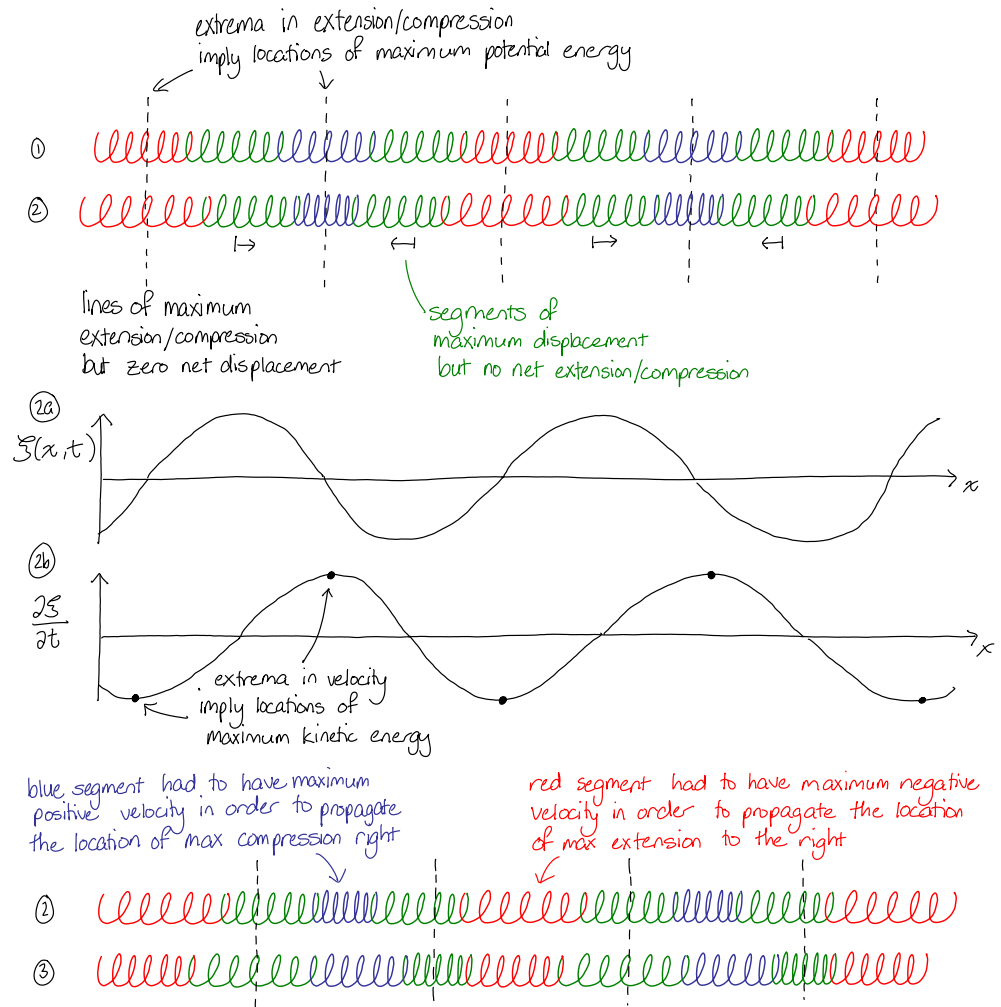 extrema in extension/compression
imply locations of maximum potential energy
①
②
lines of maximum
extension/compression
but zero net displacement
segments of
maximum displacement
but no net extension/compression
2a
ξ(x,t)
x
2b
∂ξ/∂t
x
extrema in velocity
imply locations of
maximum kinetic energy
blue segment had to have maximum
positive velocity in order to propagate
the location of max compression right
red segment had to have maximum negative
velocity in order to propagate the location
of max extension to the right
②
③